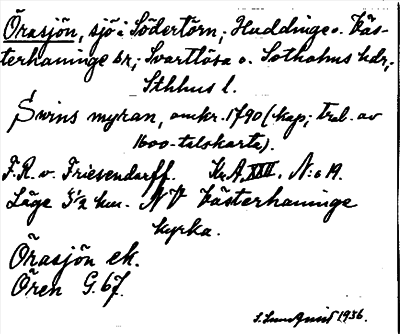 Örasjön, sjö i Södertörn; Huddinge o. Väs-
terhaninge br; Svartlösa o. Sotholms hdr;
Sthlms l.
Swins myran, omkr. 1790 (kop; trol. av
1600-talskarta).
F.R. v. Friesendorff. Kr.A. XXII. N:o 19.
Läge 3 1/2 km. NV Västerhaninge
kyrka.
Örasjön ek.
Ören G. 67.
S. Lundquist 1936.